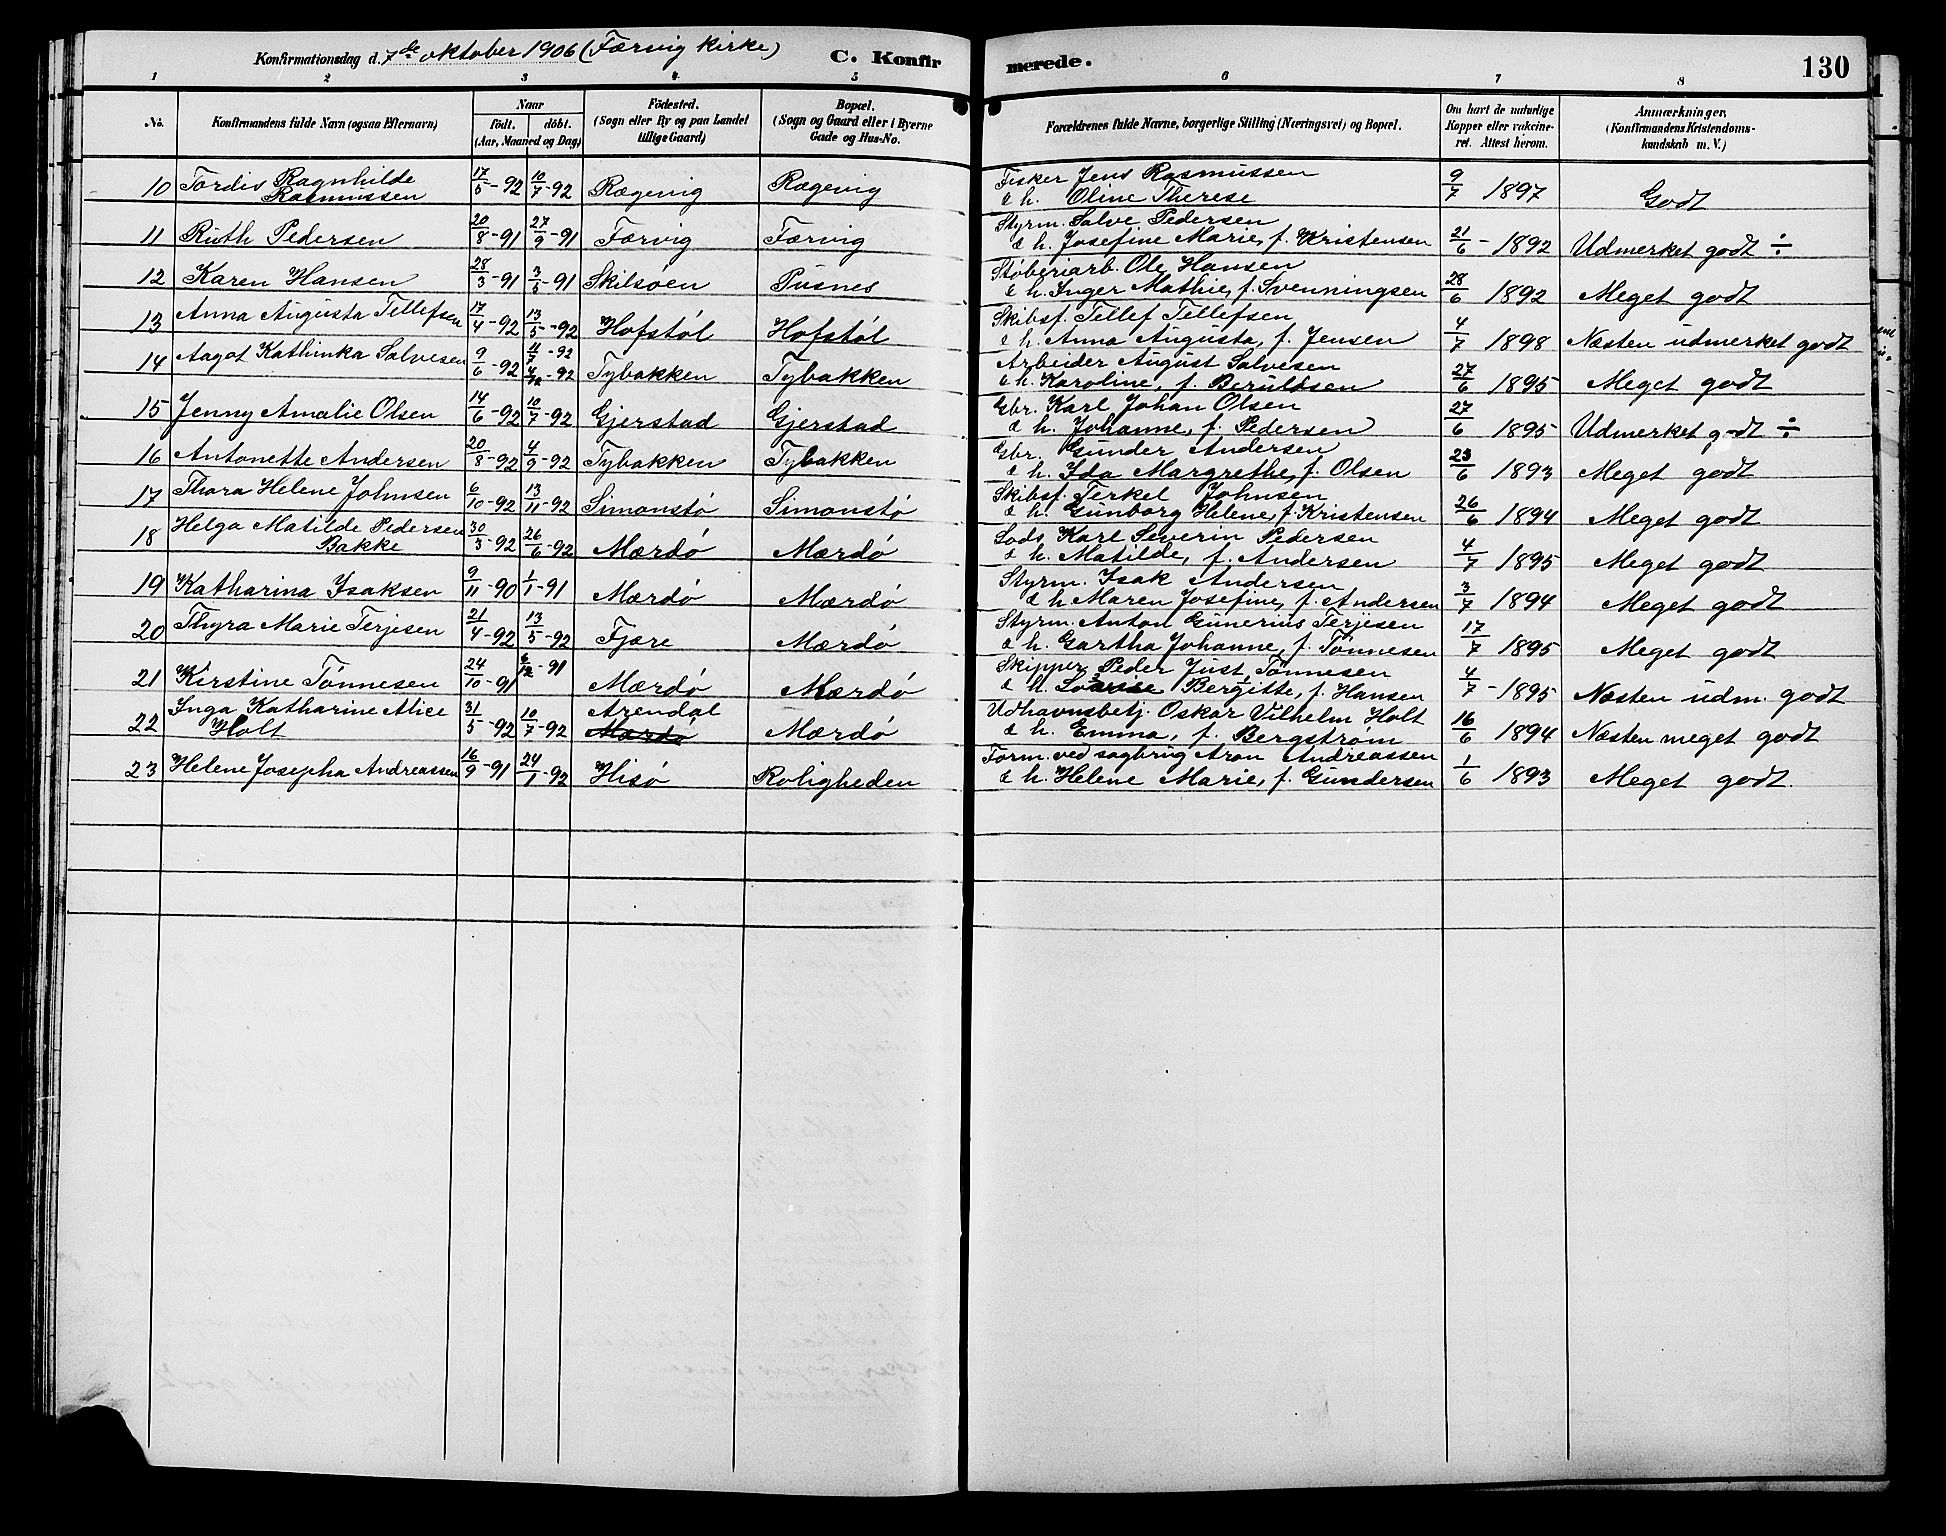 Konfirmationsdag d. 7de oktober 1906 (Færvig kirke) C. Konfirmerede. 130
1 2 3 4 5 6 7 8
No. Konfirmandens fulde Navn (ogsaa Efternavn) Naar födt. döbt. (Aar, Maaned og Dag) Födested. (Sogn eller By og paa Landet tillige Gaard) Bopæl. (Sogn og Gaard eller i Byerne Gade og Hus-No. Forældrenes fulde Navne, borgerlige Stilling (Næringsvei) og Bopæl. Om havt de naturlige Kopper eller vakcineret. Attest herom. Anmærkninger, (Konfirmandens Kristendomskundskab m. V.)
10 Tordis Ragnhilde Rasmussen 17/5-92 10/7-92 Rægevig Rægevig Fisker Jens Rasmussen
& h. Oline Therese 9/7 1897 Godt
11 Ruth Pedersen 20/8-91 27/9-91 Færvig Færvig Styrm. Salve Pedersen
& h. Josefine Marie, f. Kristensen 21/6-1892 Udmerket godt ÷
12 Karen Hansen 28/3-91 3/5-91 Skilsøen Pusnes Støberiarb. Ole Hansen
& h. Inger Mathie, f. Svenningsen 28/6 1892 Meget godt
13 Anna Augusta Tellefsen 17/4-92 13/5-92 Hofstøl Hofstøl Skibsf. Tellef Tellefsen
& h. Anna Augusta, f. Jensen 4/7 1898 Næsten udmerket godt
14 Aagot Kathinka Salvesen 9/6-92 11/7-92 4/12-92 Tybakken Tybakken Arbeider August Salvesen
& h. Karoline, f. Beruldsen 27/6 1895 Meget godt
15 Jenny Amalie Olsen 14/6-92 10/7-92 Gjerstad Gjerstad Gbr. Karl Johan Olsen
& h. Johanne, f. Pedersen 27/6 1895 Udmerket godt ÷
16 Antonette Andersen 20/8-92 4/9-92 Tybakken Tybakken Gbr. Gunder Andersen
& h. Ida Margrethe, f. Olsen 23/6 1893 Meget godt
17 Thora Helene Johnsen 6/10-92 13/11-92 Simonstø Simonstø Skibsf. Terkel Johnsen
& h. Gunborg Helene, f. Kristensen 26/6 1894 Meget godt
18 Helga Matilde Pedersen Bakke 30/3-92 26/6-92 Mærdø Mærdø Lods Karl Severin Pedersen
& h. Matilde, f. Andersen 4/7 1895 Meget godt
19 Katharina Isaksen 9/11-90 1/1-91 Mærdø Mærdø Styrm. Isak Andersen
& h. Maren Josefine, f. Andersen 3/7 1894 Meget godt
20 Thyra Marie Terjesen 21/4-92 13/5-92 Fjære Mærdø Styrm. Anton Gunerius Terjesen
& h. Gartha Johanne, f. Tønnesen 17/7 1895 Meget godt
21 Kirstine Tønnesen 24/10-91 6/12-91 Mærdø Mærdø Skipper Peder Just Tønnesen
& h. Lovise Bergitte, f. Hansen 4/7-1895 Næsten udm. godt
22 Inga Katharine Alice Holt 31/5-92 10/7-92 Arendal Mærdø Mærdø Udhavnsbetj. Oskar Vilhelm Holt
& h. Emma, f. Bergstrøm 16/6 1894 Næsten meget godt
23 Helene Josepha Andreassen 16/9-91 24/1-92 Hisø Roligheden Form. ved sagbrug Aron Andreassen
& h. Helene Marie, f. Gundersen 1/6 1893 Meget godt.